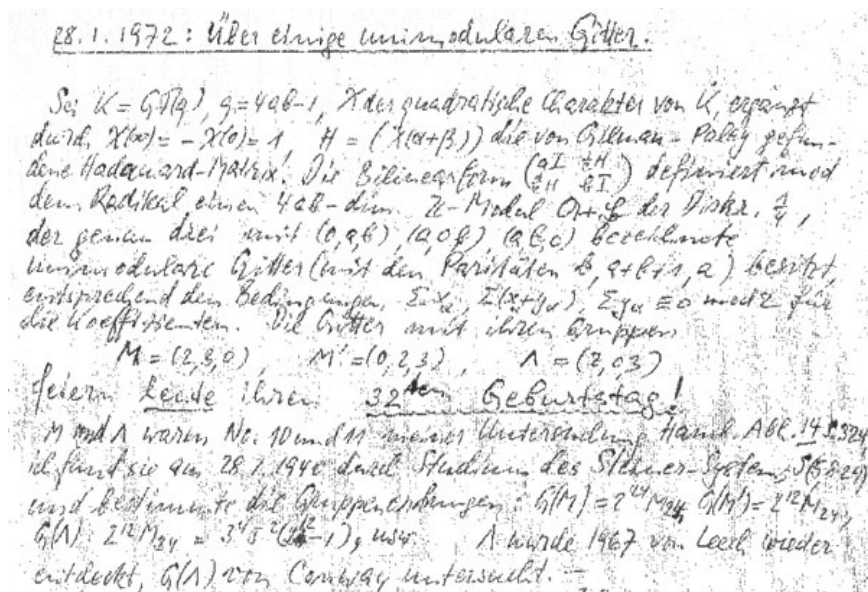 28.1.1972: Über einige unimodularen Gitter.
Sei K = GF(q), q=4ab-1, χ der quadratische Charakter von K, ergänzt
durch χ(∞) = -χ(0) = 1, H = (χ(α+β)) die von Gillman-Paley gefun-
dene Hadamard-Matrix. Die Bilinearform (aI ½H ½H bI) definiert mod
dem Radikal einen 4ab-dim. Z-Modul der Diskr. ¼,
der genau drei mit (0,a,b), (a,0,b), (a,b,0) bezeichnete
unimodulare Gitter (mit den Paritäten b, a+b+1, a) besitzt,
entsprechend den Bedingungen Σxα, Σ(xα+yα), Σyα ≡ 0 mod 2 für
die Koeffizienten. Die Gitter mit ihren Gruppen
M = (2,3,0), M' = (0,2,3), Λ = (2,0,3)
feiern heute ihren 32ten Geburtstag!
M und Λ waren No. 10 und 11 meiner Untersuchung Hamb. Abh. 14
ich fand sie am 28.1.1940 durch Studium des Steiner-Systems S(5,8,24)
und bestimmte die Gruppenordnungen: G(M) = 2²⁴M₂₄, G(M') = 2¹²M₂₄,
G(Λ): 2¹²M₂₄ = 3⁴5²(2¹²-1), usw. Λ wurde 1967 von Leech wieder
entdeckt, G(Λ) von Conway untersucht. –